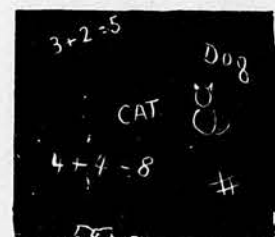 3+2=5
Dog
CAT
4+4=8
#